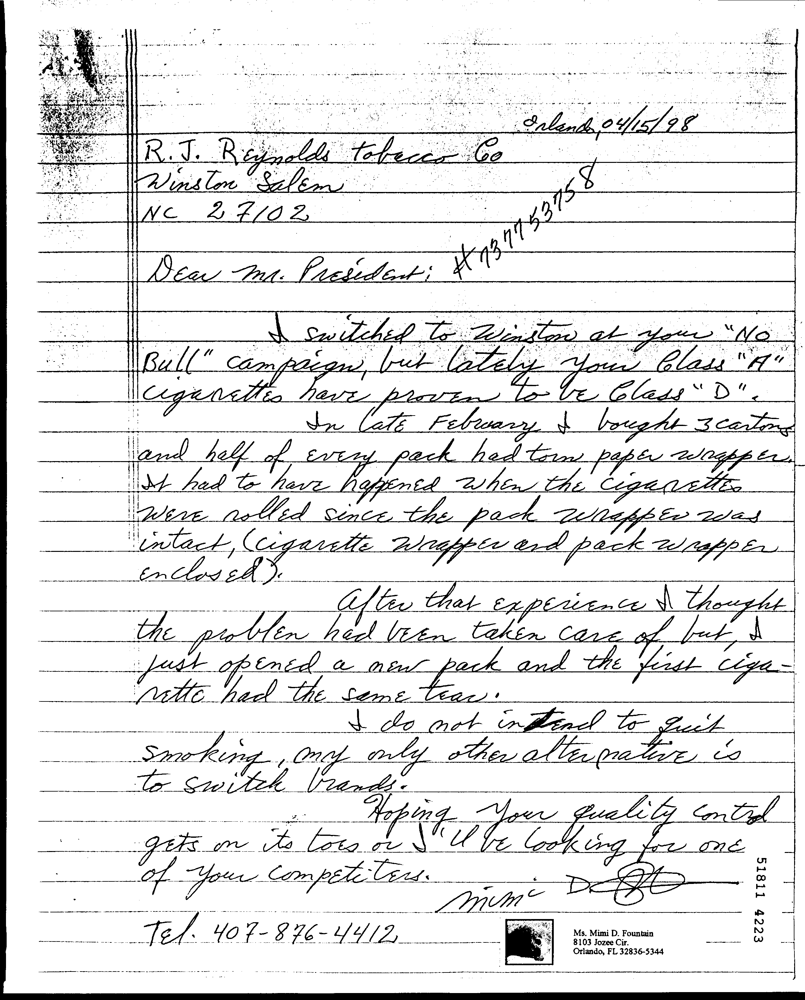 Orlando, 04/15/98
R.J. Reynolds tobacco Co
Winston Salem
NC 27102
#737753758
Dear Mr. President;
I switched to Winston at your "No
Bull" campaign, but lately your Class "A"
cigarettes have proven to be Class "D".
In late February I bought 3 cartons
and half of every pack had torn paper wrapper.
It had to have happened when the cigarettes
were rolled since the pack wrapper was
intact, (cigarette wrapper and pack wrapper
enclosed).
After that experience I thought
the problen had been taken care of but, I
just opened a new pack and the first ciga-
rette had the same tear.
I do not intend to quit
smoking, my only other alternative is
to switch brands.
Hoping your quality control
gets on its toes or I'll be looking for one
of your competiters.
Mimi D.
Tel. 407-876-4412
Ms. Mimi D. Fountain
8103 Jozee Cir.
Orlando, FL 32836-5344
51811 4223